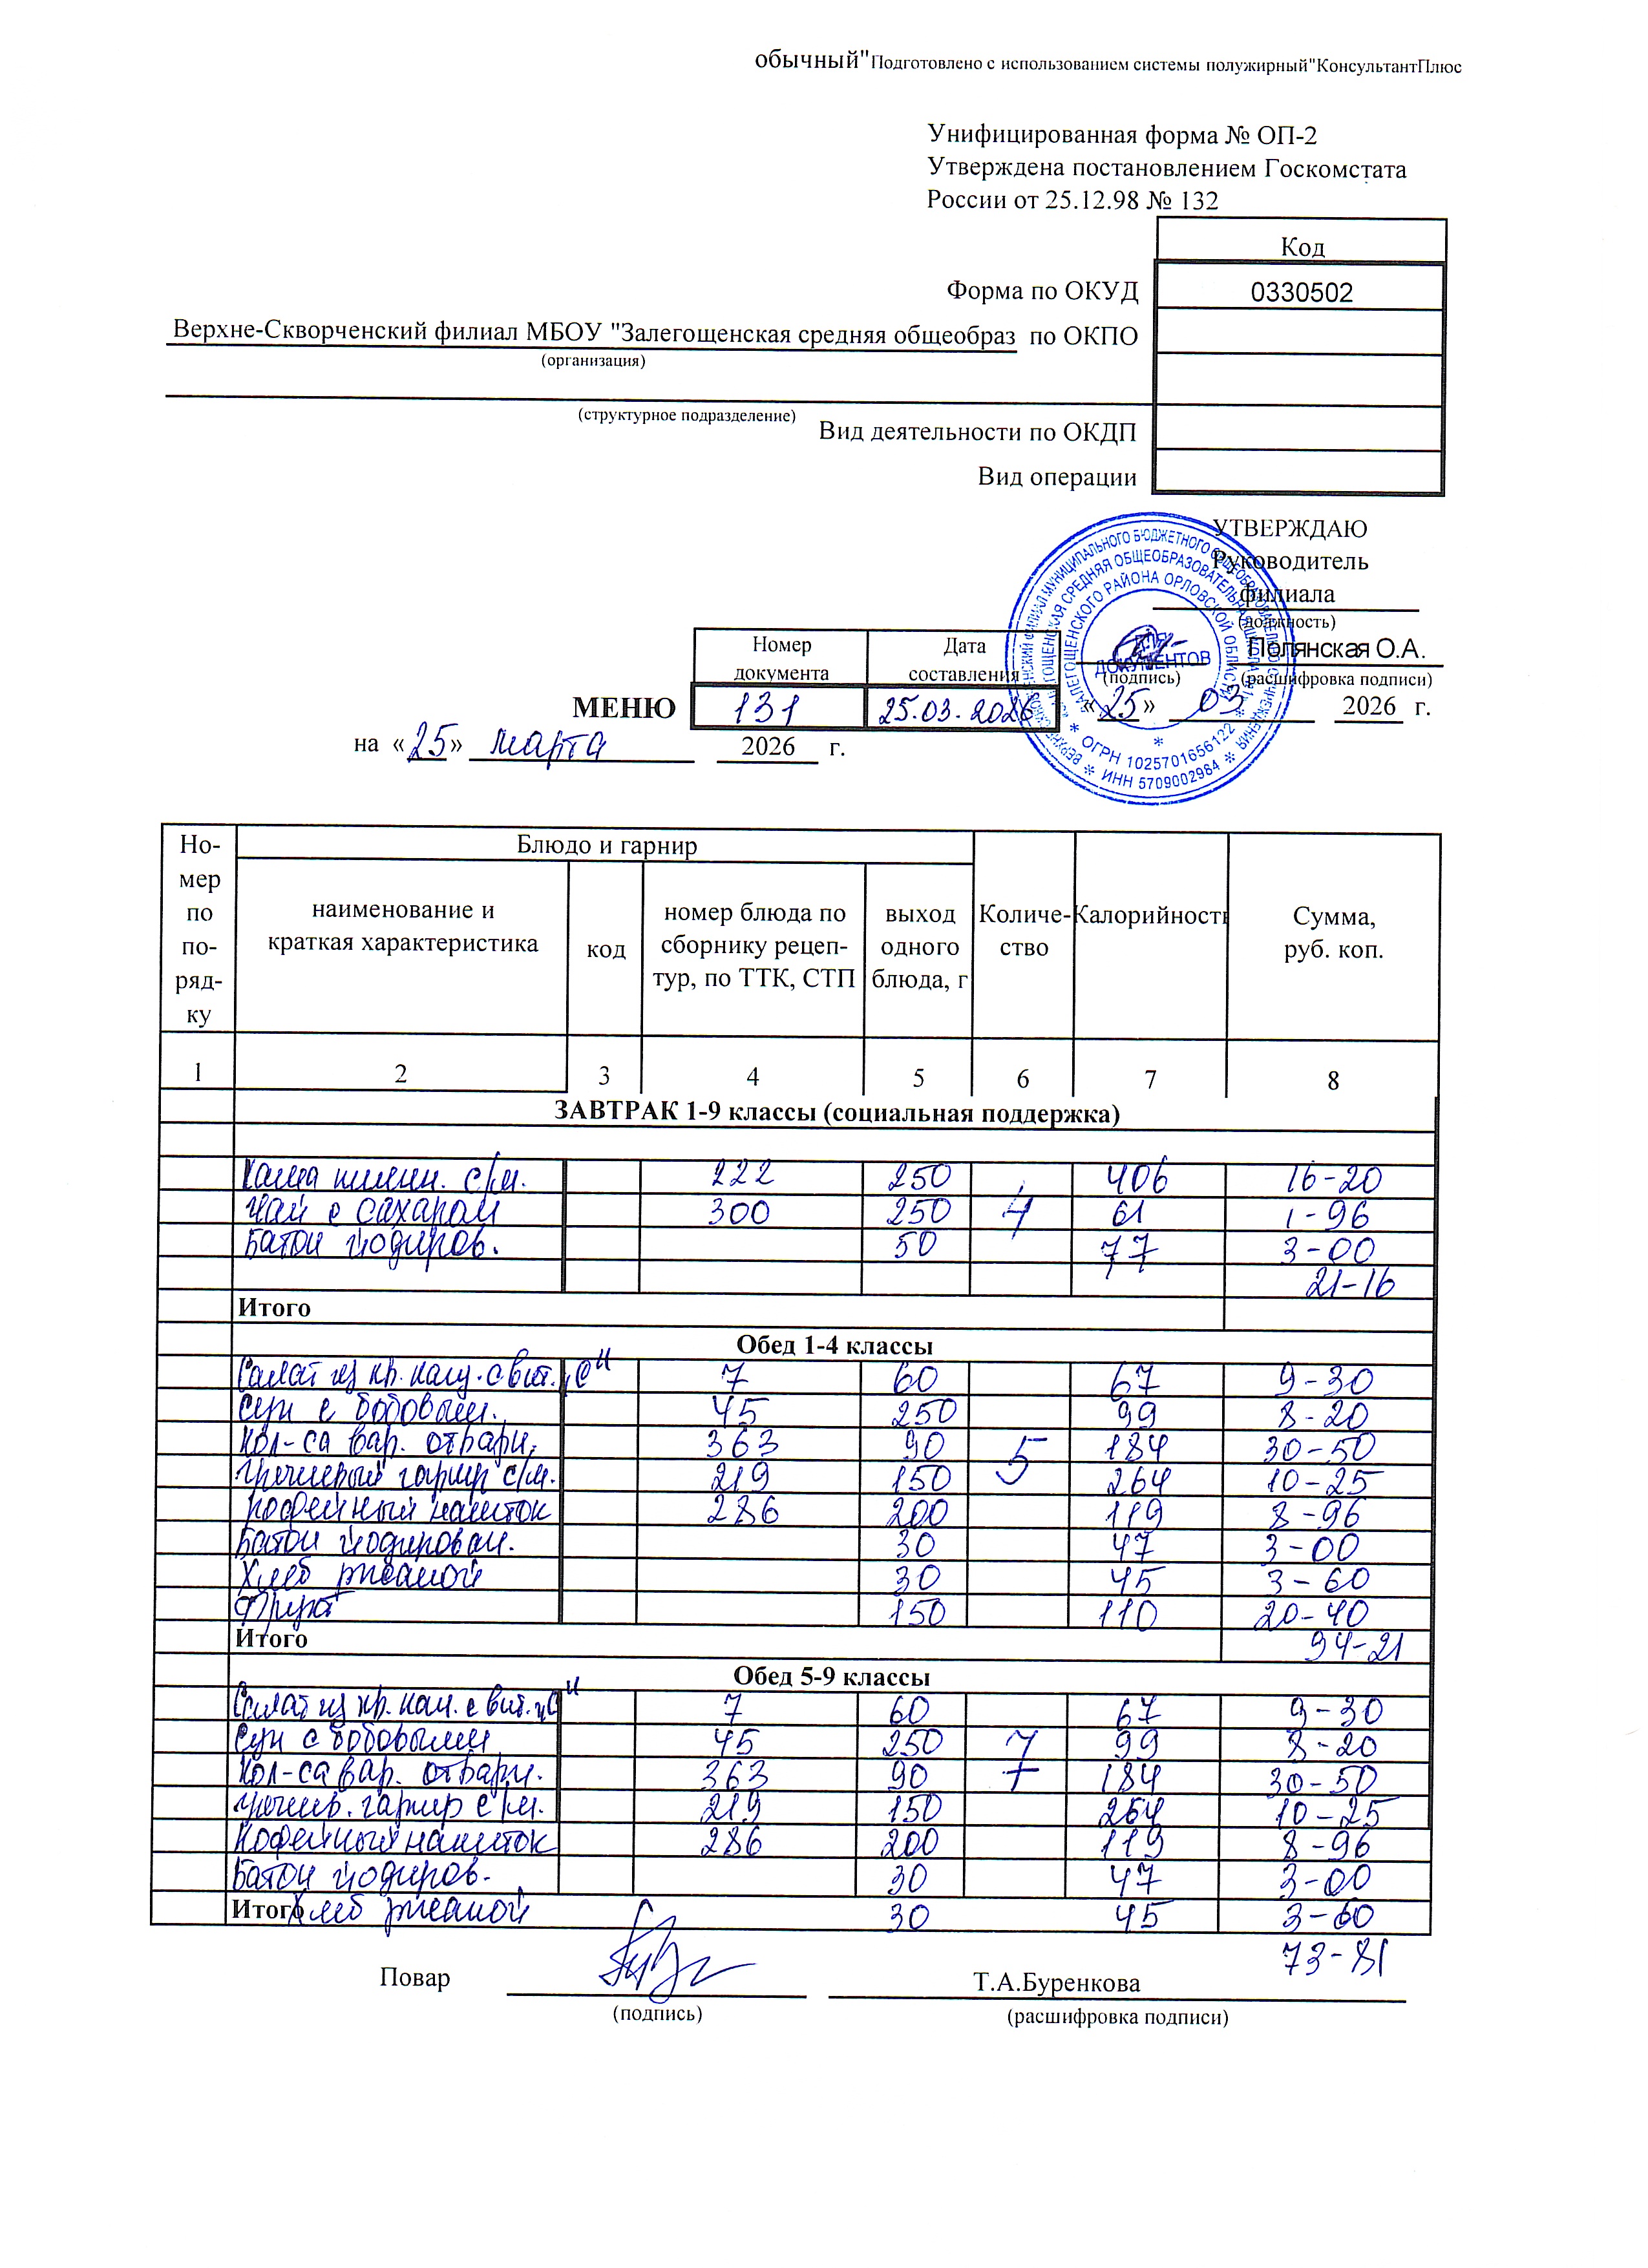 обычный"Подготовлено с использованием системы полужирный"КонсультантПлюс
Унифицированная форма № ОП-2
Утверждена постановлением Госкомстата
России от 25.12.98 № 132
Код
Форма по ОКУД 0330502
Верхне-Скворченский филиал МБОУ "Залегощенская средняя общеобраз по ОКПО
(организация)
(структурное подразделение)
Вид деятельности по ОКДП
Вид операции
УТВЕРЖДАЮ
Руководитель
филиала
(должность)
Полянская О.А.
(подпись) (расшифровка подписи)
«25» 03 2026 г.
ДЛЯ ДОКУМЕНТОВ
ЗАЛЕГОЩЕНСКОГО РАЙОНА ОРЛОВСКОЙ ОБЛАСТИ
* ОГРН 1025701656122 *
* ИНН 5709002984 *
Номер документа Дата составления
МЕНЮ 131 25.03.2026
на «25» марта 2026 г.
Но-мер по по-ряд-ку Блюдо и гарнир Количе-ство Калорийность Сумма, руб. коп.
наименование и краткая характеристика код номер блюда по сборнику рецеп-тур, по ТТК, СТП выход одного блюда, г
1 2 3 4 5 6 7 8
ЗАВТРАК 1-9 классы (социальная поддержка)
Каша пшен. с/м. 222 250 406 16-20
Чай с сахаром 300 250 4 61 1-96
Батон йодиров. 50 77 3-00
21-16
Итого
Обед 1-4 классы
Салат из кр. капу. с вит. „С" 7 60 67 9-30
Суп с бобовым. 45 250 99 8-20
Кол-са вар. отварн. 363 90 5 184 30-50
Гречневый гарнир с/м. 219 150 264 10-25
Кофейный напиток 286 200 119 8-96
Батон йодирован. 30 47 3-00
Хлеб ржаной 30 45 3-60
Фрукт 150 110 20-40
Итого 94-21
Обед 5-9 классы
Салат из кр. кап. с вит. „С" 7 60 67 9-30
Суп с бобовыми 45 250 7 99 8-20
Кол-са вар. отварн. 363 90 184 30-50
Гречнев. гарнир с/м. 219 150 264 10-25
Кофейный напиток 286 200 119 8-96
Батон йодиров. 30 47 3-00
Итого Хлеб ржаной 30 45 3-60
73-81
Повар Т.А.Буренкова
(подпись) (расшифровка подписи)